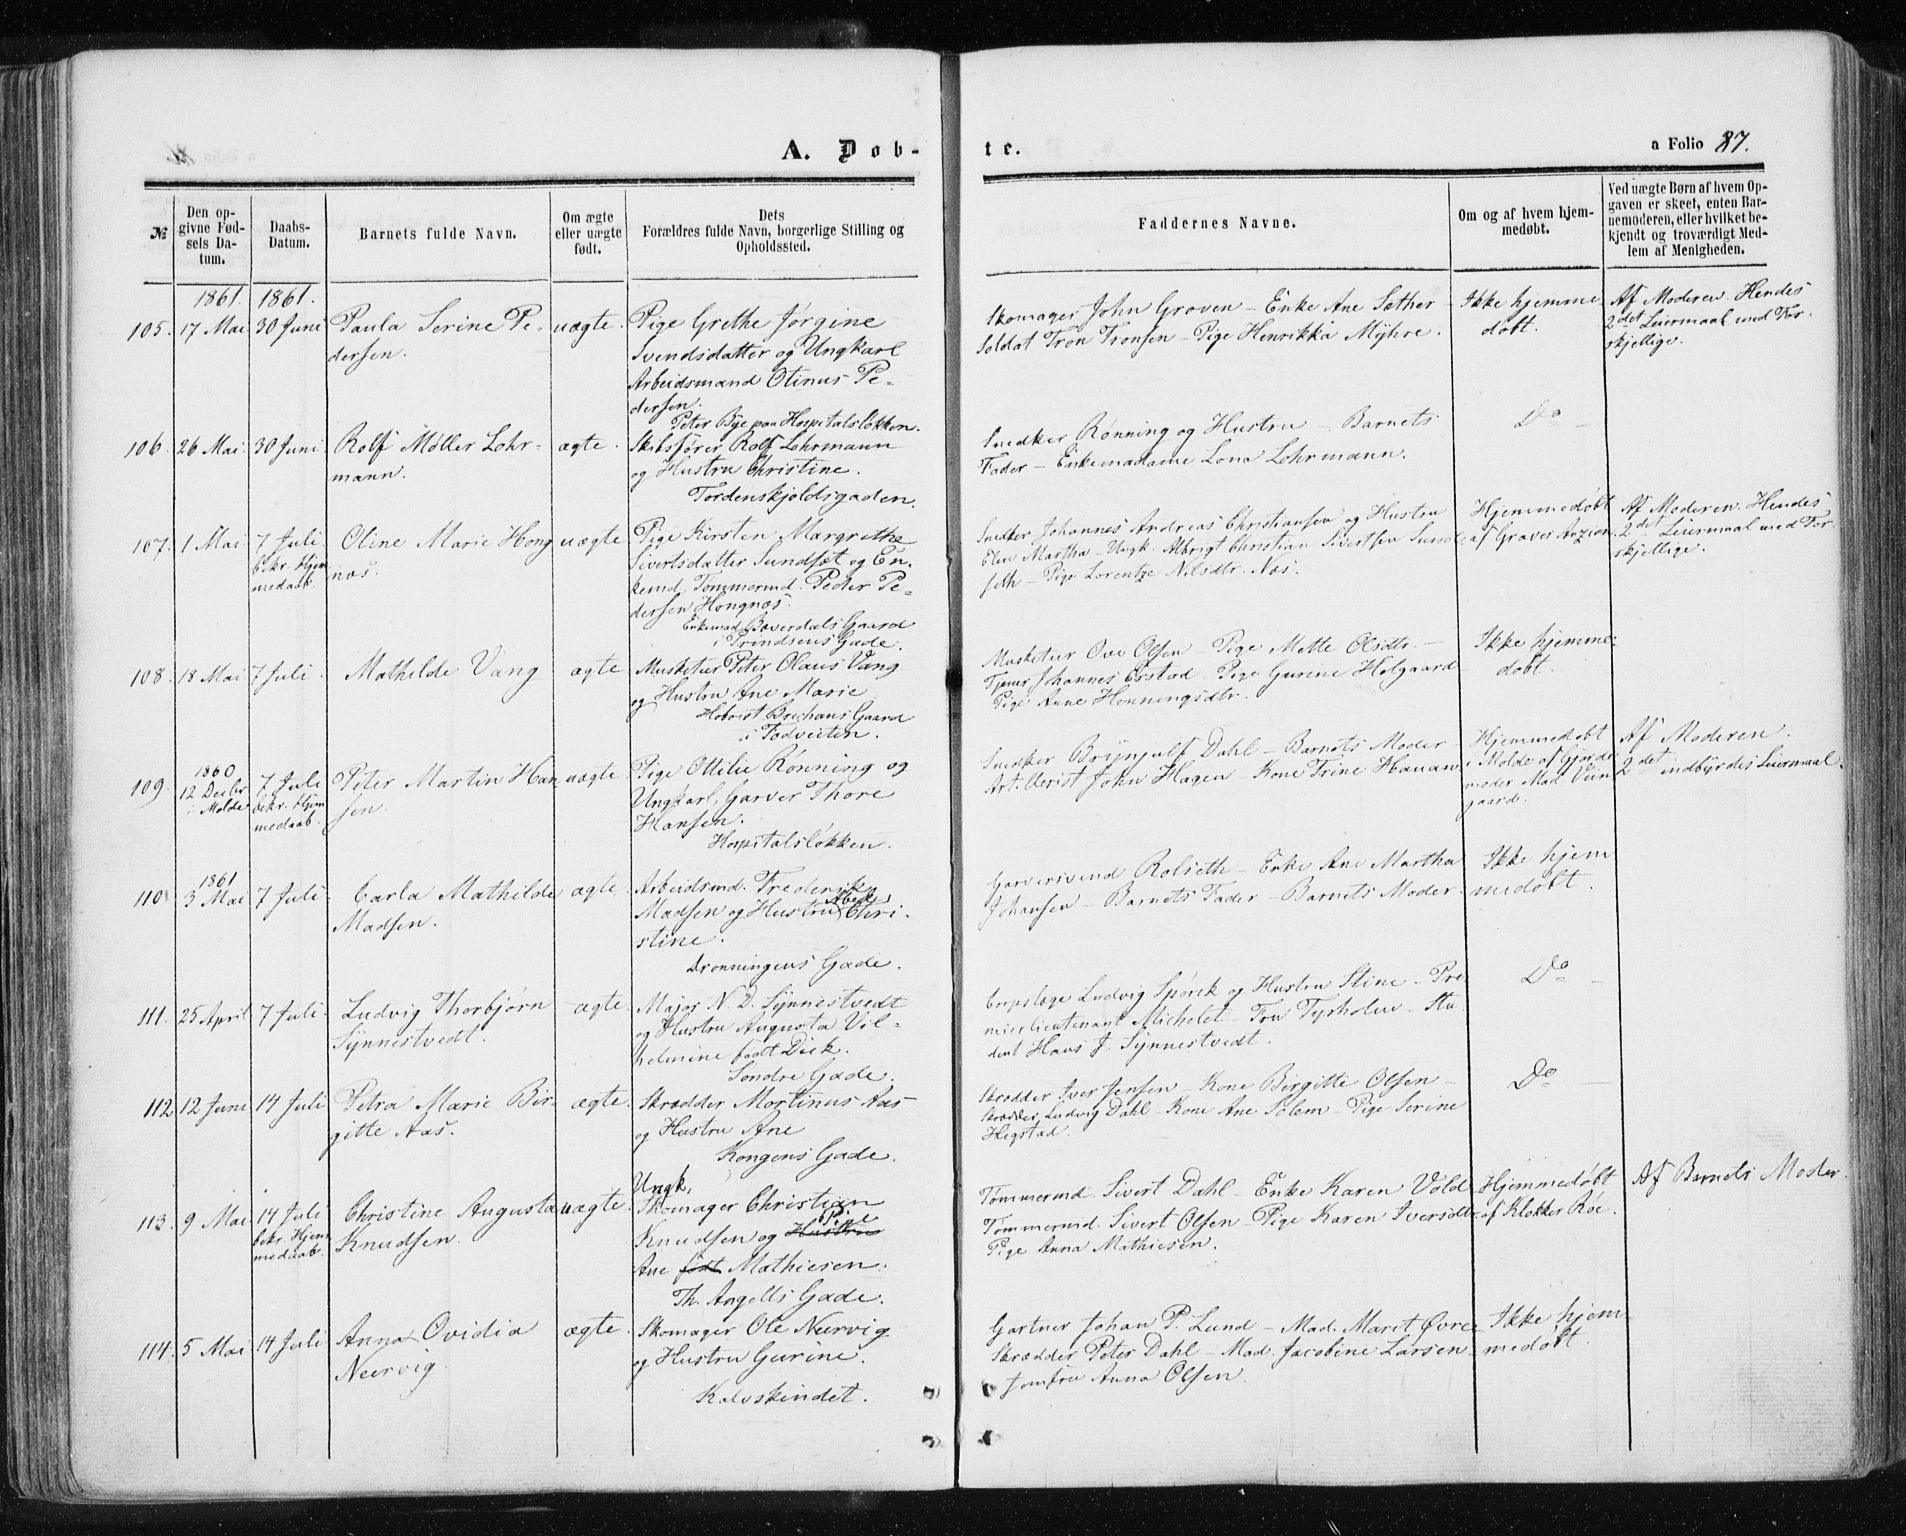 A. Døb-
te.
a Folio 87.
№
Den op-
givne Fød-
sels Da-
tum.
Daabs-
Datum.
Barnets fulde Navn.
Om ægte
eller uægte
født.
Dets
Forældres fulde Navn, borgerlige Stilling og
Opholdssted.
Faddernes Navne.
Om og af hvem hjem-
medøbt.
Ved uægte Børn af hvem Op-
gaven er skeet, enten Bar-
nemoderen, eller hvilket be-
kjendt og troværdigt Med-
lem af Menigheden.
1861. 1861.
105. 17 Mai 30 Juni Paula Serine Pe-
dersen.
uægte.
Pige Grethe Jørgine
Svendsdatter og Ungkarl
Arbeidsmand Otinus Pe-
dersen.
Peter Bye paa Hospitalsløkken.
Skomager John Groven - Enke Ane Sæther
Soldat Tron Tronsen - Pige Henrikka Myhre.
Ikke hjemme
døbt.
Af Moderen. Hendes
2det Leiermaal med For-
skjellige.
106. 26 Mai 30 Juni Rolf Møller Lohr-
mann.
ægte.
Skibsfører Rolf Lohrmann
og Hustru Christine.
Tordenskjoldsgaden.
Snedker Rønning og Hustru - Barnets
Fader - Enkemadame Lona Lohrmann.
Do
107. 1 Mai 7 Juli
bekr. Hjem
medaab.
Oline Marie Hong
næs.
uægte
Pige Kirsten Margrethe
Sivertsdatter Sundset og En-
kemd, Tømmermd. Peder Pe-
dersen Hongnæs.
Enkemad. Bæverdals Gaard
i Prindsens Gade.
Snedker Johannes Andreas Christiansen og Hustru
Elen Martha - Ungk. Albrigt Christian Sivertsen Sund-
seth - Pige Lorentze Nilsdtr. Næs.
Hjemmedøbt
af Graver Anzion.
Af Moderen. Hendes
2det Leiermaal med For-
skjellige.
108. 18 Mai 7 Juli. Mathilde Vang
ægte
Musketur Peter Olaus Vang
og Hustru Ane Marie
Hoboist Brechans Gaard
i Todveiten.
Musketur Ove Olsen - Pige Mette Olsdtr. -
Tjener Johannes Erstad. Pige Gurine Holgaard
Pige Anne Henningsdtr.
Ikke hjemme-
døbt.
109. 1860
12 Decbr
i Molde
7 Juli
bekr. Hjem
medaab.
Peter Martin Han
sen.
uægte
Pige Ottilie Rønning og
Ungkarl, Garver Thore
Hansen.
Hospitalsløkken.
Snedker Brynjulf Dahl - Barnets Moder
Artillerist John Hagen - Kone Trine Hauan
Hjemmedøbt
i Molde af Gjorde
moder Mad Vein
gaard.
Af Moderen.
2det indbyrdes Leiermaal.
1861
110. 3 Mai 7 Juli. Carla Mathilde
Madsen.
ægte
Arbeidsmd. Frederik
Madsen og Hustru Abede Chri-
stine.
Dronningens Gade.
Garversvend Rolseth - Enke Ane Martha
Johansen - Barnets Fader - Barnets Moder.
Ikke hjem
medøbt.
111. 25 April 7 Juli. Ludvig Thorbjørn
Synnestvedt.
ægte.
Major N. D. Synnestvedt
og Hustru Augusta Vil-
helmine født Dick.
Søndre Gade.
Corpslæge Ludvig Spørck og Hustru Stine - Pre
mierlieutenant Michelet - Fru Tyrholm - Stu
dent Hans J. Synnestvedt.
Do
112. 12 Juni 14 Juli Petra Marie Bir-
gitte Aas.
ægte.
Skrædder Mortinus Aas
og Hustru Ane
Kongens Gade.
Skrædder Iver Jensen - Kone Birgitte Olsen -
Skrædder Ludvig Dahl - Kone Ane Solem - Pige Serine
Hegstad.
Do
113. 9 Mai 14 Juli
bekr. Hjem
medaab.
Christine Augusta
Knudsen.
uægte.
Ungk,
Skomager Christian
Knudsen og Hustru Pige
Ane født Mathiesen.
Th. Angells Gade.
Tømmermd. Sivert Dahl - Enke Karen Vold
Tømmermd. Sivert Olsen - Pige Karen Iversdtr.
Pige Anna Mathiesen.
Hjemmedøbt
af Klokker Røe.
Af Barnets Moder.
114. 5 Mai 14 Juli Anna Ovidia
Neervig.
ægte.
Skomager Ole Neervig
og Hustru Gurine.
Kalvskindet.
Gartner Johan P. Lund - Mad. Marit Øvre
Skrædder Peter Dahl - Mad. Jacobine Larsen
Jomfru Anna Olsen.
Ikke hjem
medøbt.